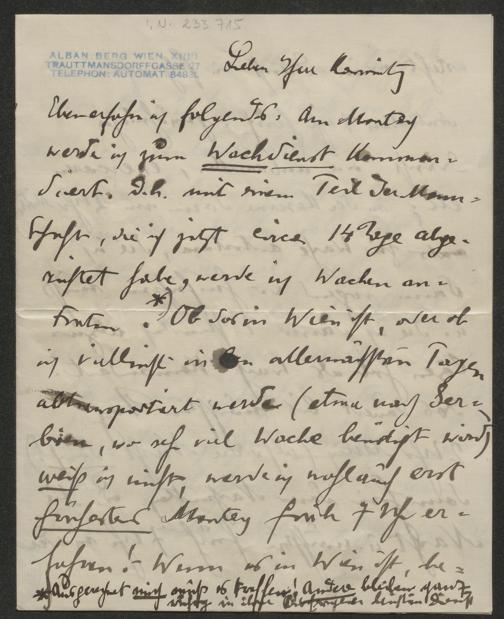 I.N. 233.715
ALBAN BERG WIEN XIII/1
TRAUTTMANSDORFFGASSE 27
TELEPHON: AUTOMAT 84831
Lieber Herr
Eben erfahre ich folgendes: Am Montag
werde ich zum Wachdienst komman-
diert. D.h. mit einem Teil der Mann-
schaft, die ich jetzt circa 14 Tage abge-
richtet habe, werde ich Wachen an-
treten. *) Ob das in Wien ist, oder ob
ich vielleicht in den allernächsten Tagen
abtransportiert werde (etwa nach Ser-
bien, wo sehr viel Wache benötigt wird)
weiß ich nicht, werde ich wohl auch erst
frühestens Montag früh 7 Uhr er-
fahren! Wenn es in Wien ist, be-
*) Ausgerechnet mich muß es treffen! Andere bleiben ganz
ruhig in ihrem Dienst